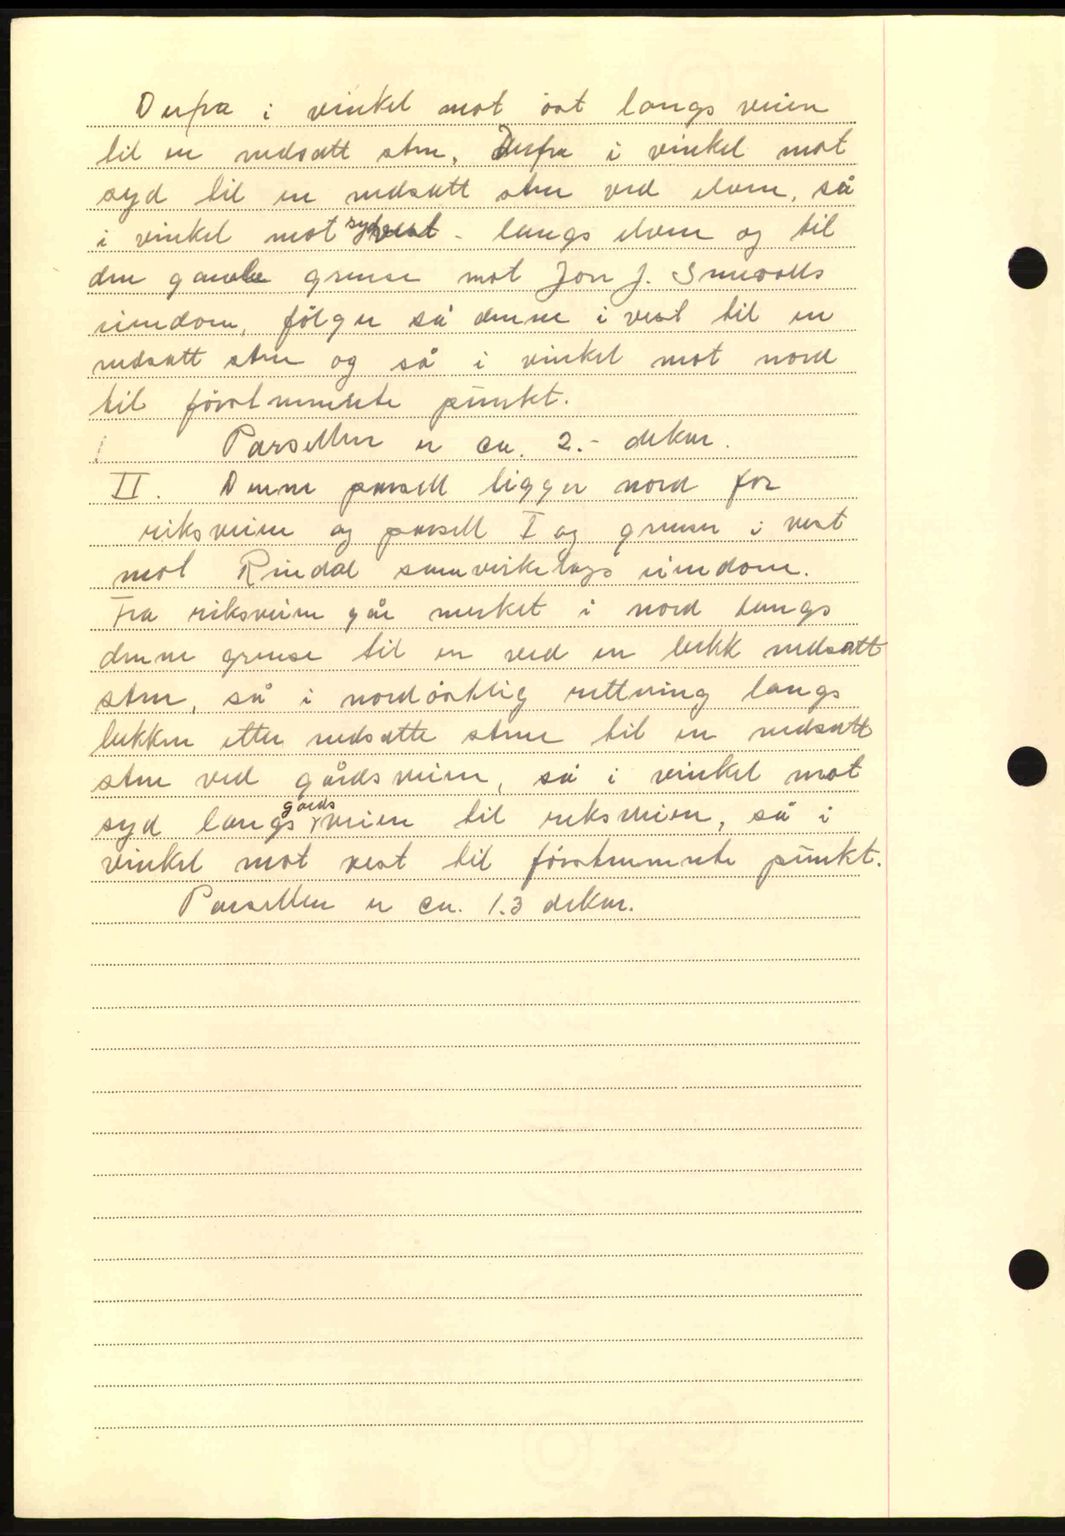 Derfra i vinkel mot öst langs veien
til en nedsatt sten, Derfra i vinkel mot
syd til en nedsatt sten ved elven, så
i vinkel mot syd vest - langs elven og til
den gamle grense mot Jon J.
eiendom, fölger så denne i vest til en
nedsatt sten og så i vinkel mot nord
til förstnevnte punkt.
Parsellen er ca. 2.- dekar.
II. Denne parsell ligger nord for
riksveien og parsell I og grenser i vest
mot Rindal samvirkelags eiendom.
Fra riksveien går merket i nord langs
denne grense til en ved en bekk nedsatt
sten, så i nordöstlig rettning langs
bekken etter nedsatte stene til en nedsatt
sten ved gårdsveien, så i vinkel mot
syd langs gårds veien til riksveien, så i
vinkel mot vest til förstnevnte punkt.
Parsellen er ca. 1.3 dekar.